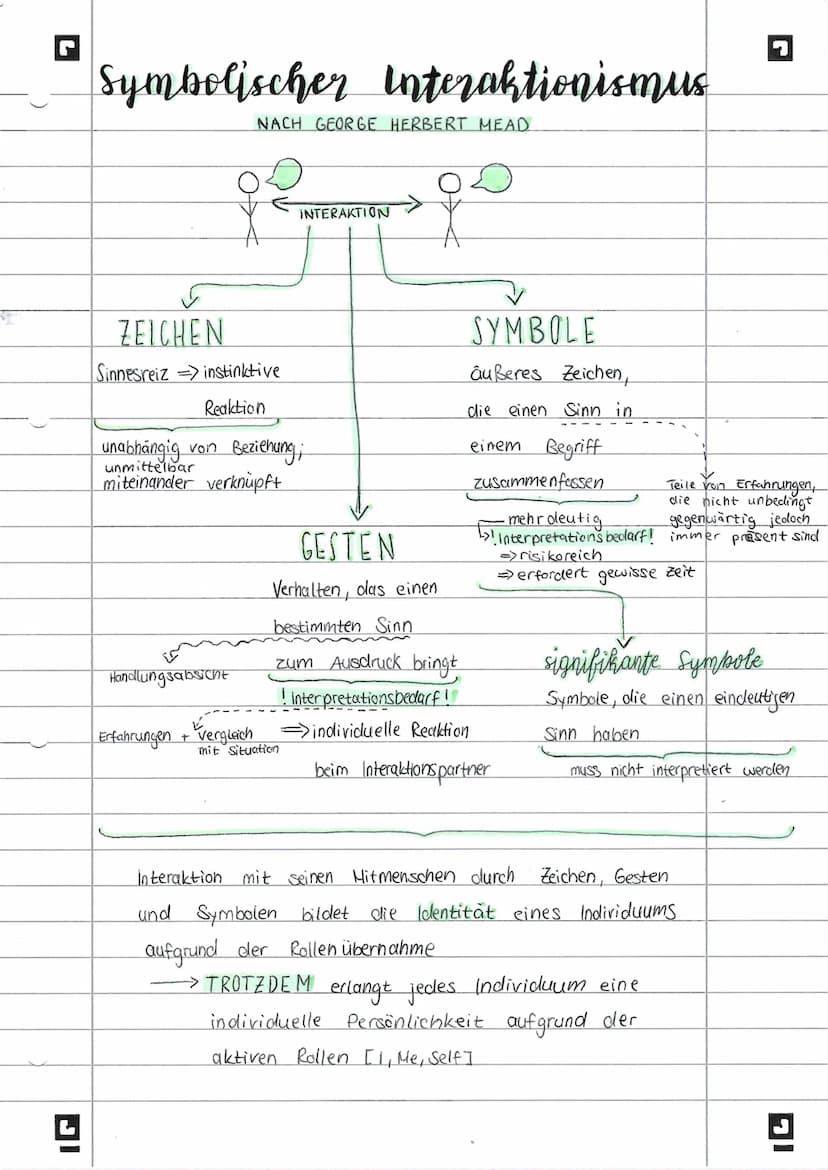 Symbolischer Interaktionismus
NACH GEORGE HERBERT MEAD
INTERAKTION
ZEICHEN
Sinnesreiz ⇒ instinktive
Reaktion
unabhängig von Beziehung;
unmittelbar
miteinander verknüpft
SYMBOLE
äußeres Zeichen,
die einen Sinn in
einem Begriff
zusammenfassen
Teile von Erfahrungen,
die nicht unbedingt
gegenwärtig jedoch
immer präsent sind
mehrdeutig
! Interpretationsbedarf!
⇒ risikoreich
⇒ erfordert gewisse Zeit
GESTEN
Verhalten, das einen
bestimmten Sinn
zum Ausdruck bringt
Handlungsabsicht
! Interpretationsbedarf!
Erfahrungen + Vergleich
mit Situation
⇒ individuelle Reaktion
beim Interaktionspartner
signifikante Symbole
Symbole, die einen eindeutigen
Sinn haben
muss nicht interpretiert werden
Interaktion mit seinen Mitmenschen durch Zeichen, Gesten
und Symbolen bildet die Identität eines Individuums
aufgrund der Rollenübernahme
→ TROTZDEM erlangt jedes Individuum eine
individuelle Persönlichkeit aufgrund der
aktiven Rollen [I, Me, Self]